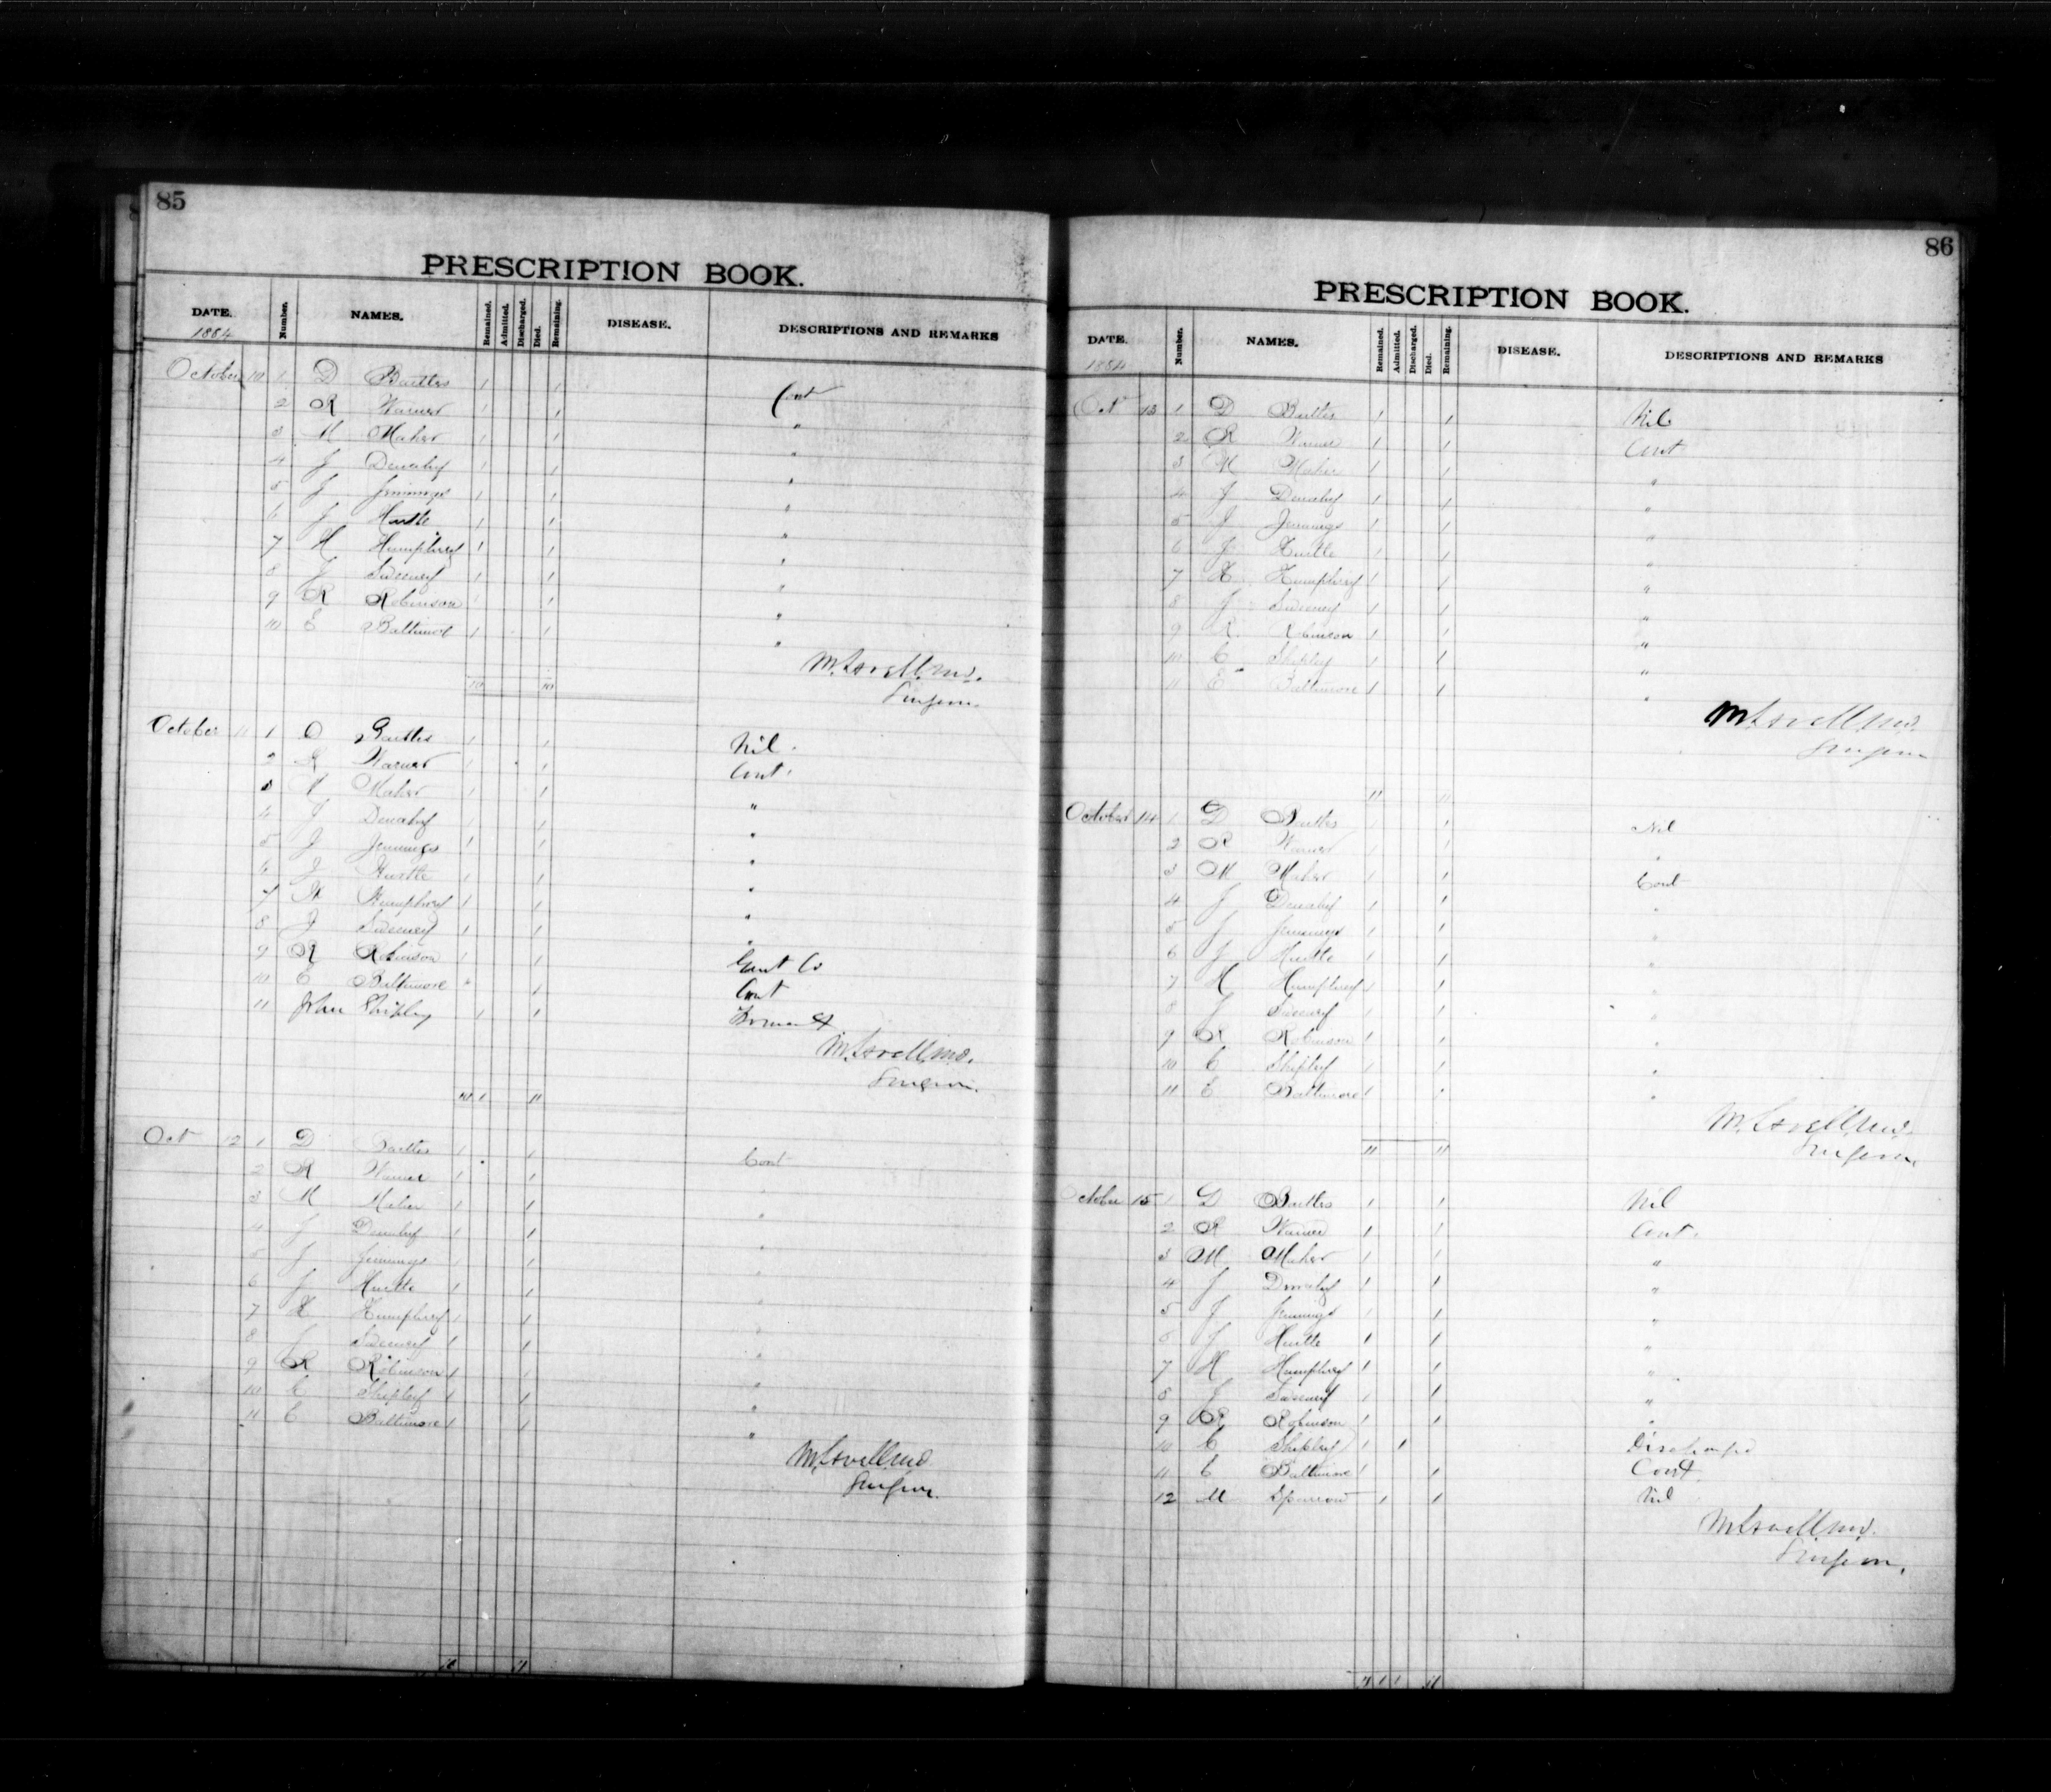 85
PRESCRIPTION BOOK.
DATE. Number. NAMES. Remained. Admitted. Discharged. Died. Remaining. DISEASE. DESCRIPTIONS AND REMARKS
1884
October 10 1 D Bartles 1 1 Cont
2 R Warner 1 1 "
3 M Maher 1 1 "
4 J Denahy 1 1 "
5 J Jennings 1 1 "
6 J Hurtle 1 1 "
7 H Humphrey 1 1 "
8 J Sweeney 1 1 "
9 R Robinson 1 1 "
10 E Baltimore 1 1 "
M. Lovell, MD.
10 10 Surgeon.
October 11 1 D Bartles 1 1 Nil.
2 R Warner 1 1 Cont.
3 M Maher 1 1 "
4 J Denahy 1 1 "
5 J Jennings 1 1 "
6 J Hurtle 1 1 "
7 H Humphrey 1 1 "
8 J Sweeney 1 1 "
9 R Robinson 1 1
10 E Baltimore 1 1 Cont
11 John Shipley 1 1
M. Lovell, MD.
Surgeon.
10 1 11
Oct 12 1 D Bartles 1 1 Cont
2 R Warner 1 1 "
3 M Maher 1 1 "
4 J Denahy 1 1 "
5 J Jennings 1 1 "
6 J Hurtle 1 1 "
7 H Humphrey 1 1 "
8 J Sweeney 1 1 "
9 R Robinson 1 1 "
10 C Shipley 1 1 "
11 E Baltimore 1 1 "
M. Lovell, MD
Surgeon.
11
86
PRESCRIPTION BOOK.
DATE. Number. NAMES. Remained. Admitted. Discharged. Died. Remaining. DISEASE. DESCRIPTIONS AND REMARKS
1884
Oct 13 1 D Bartles 1 1 Nil
2 R Warner 1 1 Cont
3 M Maher 1 1 "
4 J Denahy 1 1 "
5 J Jennings 1 1 "
6 J Hurtle 1 1 "
7 H Humphrey 1 1 "
8 J Sweeney 1 1 "
9 R Robinson 1 1 "
10 C Shipley 1 1 "
11 E Baltimore 1 1 "
M. Lovell, MD.
Surgeon
11 11
October 14 1 D Bartles 1 1 Nil
2 R Warner 1 1 "
3 M Maher 1 1 Cont
4 J Denahy 1 1 "
5 J Jennings 1 1 "
6 J Hurtle 1 1 "
7 H Humphrey 1 1 "
8 J Sweeney 1 1 "
9 R Robinson 1 1 "
10 C Shipley 1 1 "
11 E Baltimore 1 1 "
M. Lovell, MD.
11 11 Surgeon.
October 15 1 D Bartles 1 1 Nil
2 R Warner 1 1 Cont.
3 M Maher 1 1 "
4 J Denahy 1 1 "
5 J Jennings 1 1 "
6 J Hurtle 1 1 "
7 H Humphrey 1 1 "
8 J Sweeney 1 1 "
9 R Robinson 1 1 "
10 C Shipley 1 1 Discharged
11 E Baltimore 1 1 Cont.
12 M Sparrow 1 1 Nil
M. Lovell, MD.
Surgeon.
11 1 1 11